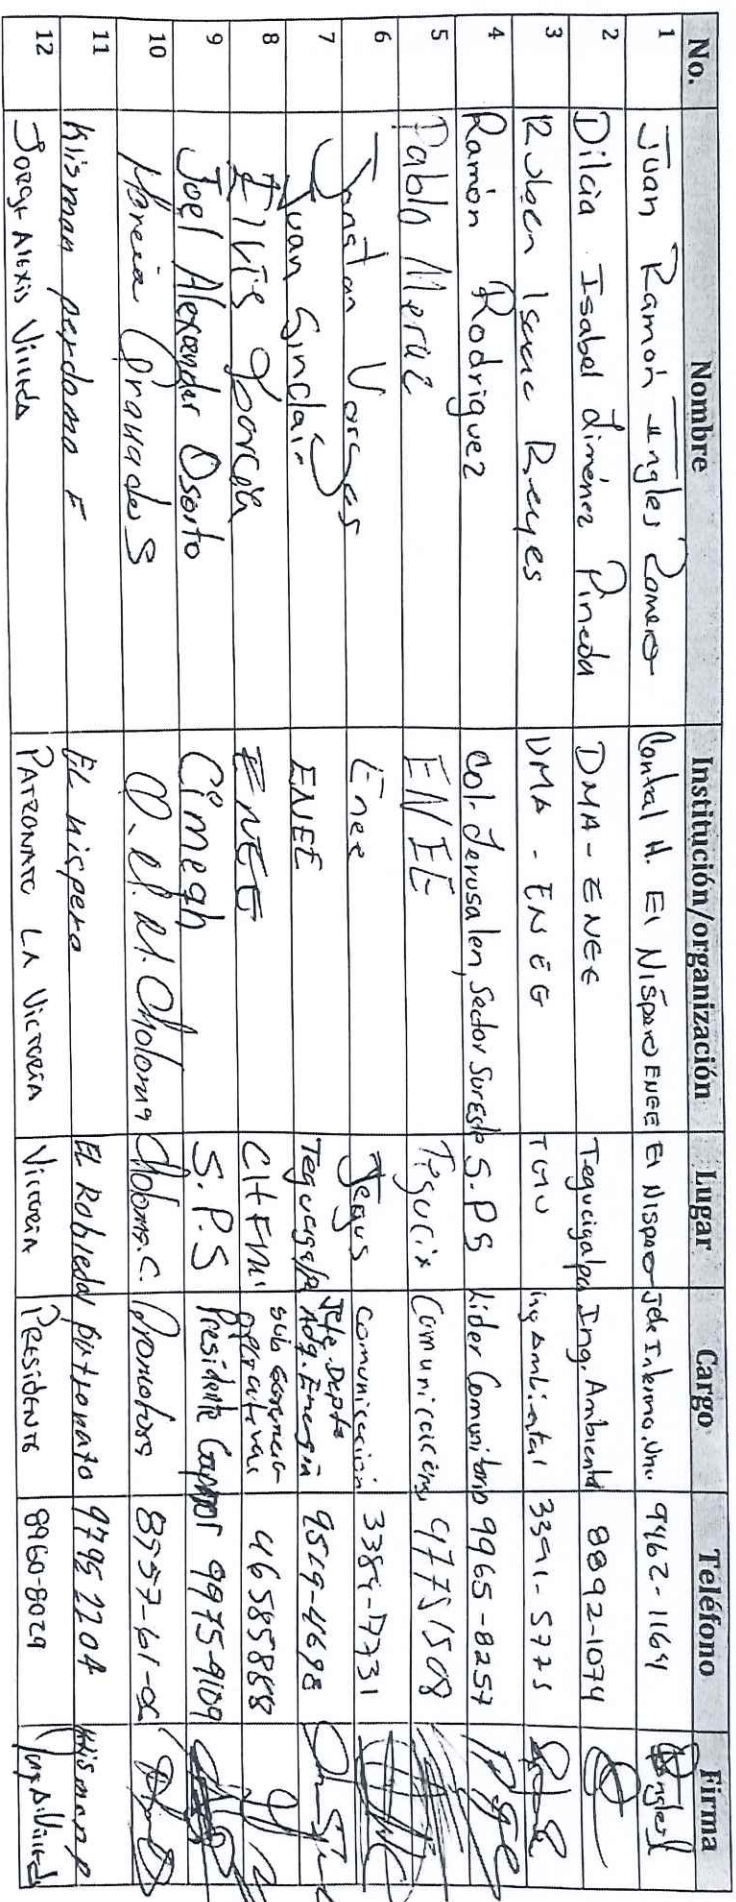 No. Nombre Institución/organización Lugar Cargo Teléfono Firma
1 Juan Ramón Ingles Romero Central H. El Níspero ENEE El Nispero Jefe Interino. 9962-1164
2 Dilcia Isabel Jiménez Pineda DMA-ENEE Tegucigalpa Ing. Ambiental 8892-1074
3 Ruben Isaac Reyes DMA-ENEE ing Ambiental 3391-5775
4 Ramón Rodriguez Col. Jerusalen, Sector Sureste S.PS Lider Comunitario 9965-8257
5 Pablo ENEE Comunicaciones 97751508
6 Vargas Enee Tegus Comunicacion
7 Juan Sinclair ENEE Tegucigalpa Jefe. Depto Adq. Energia 9519-4698
8 Elvis Garcia ENEE sub Gerencia 46585888
9 Joel Alexander Osorto Cimeqh S.P.S Presidente 9975-9109
10 Granados Choloma Choloma.C. Promotora
11 Klisman perdomo F El nispero EL Robledal patronato 9795 2204 Klisman p
12 Jorge Alexis Villeda PATRONATO LA VICTORIA Victoria Presidente 8960-8029